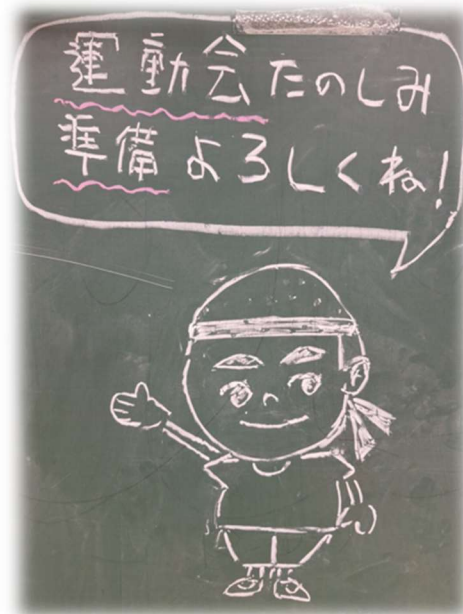 運動会たのしみ
準備よろしくね!